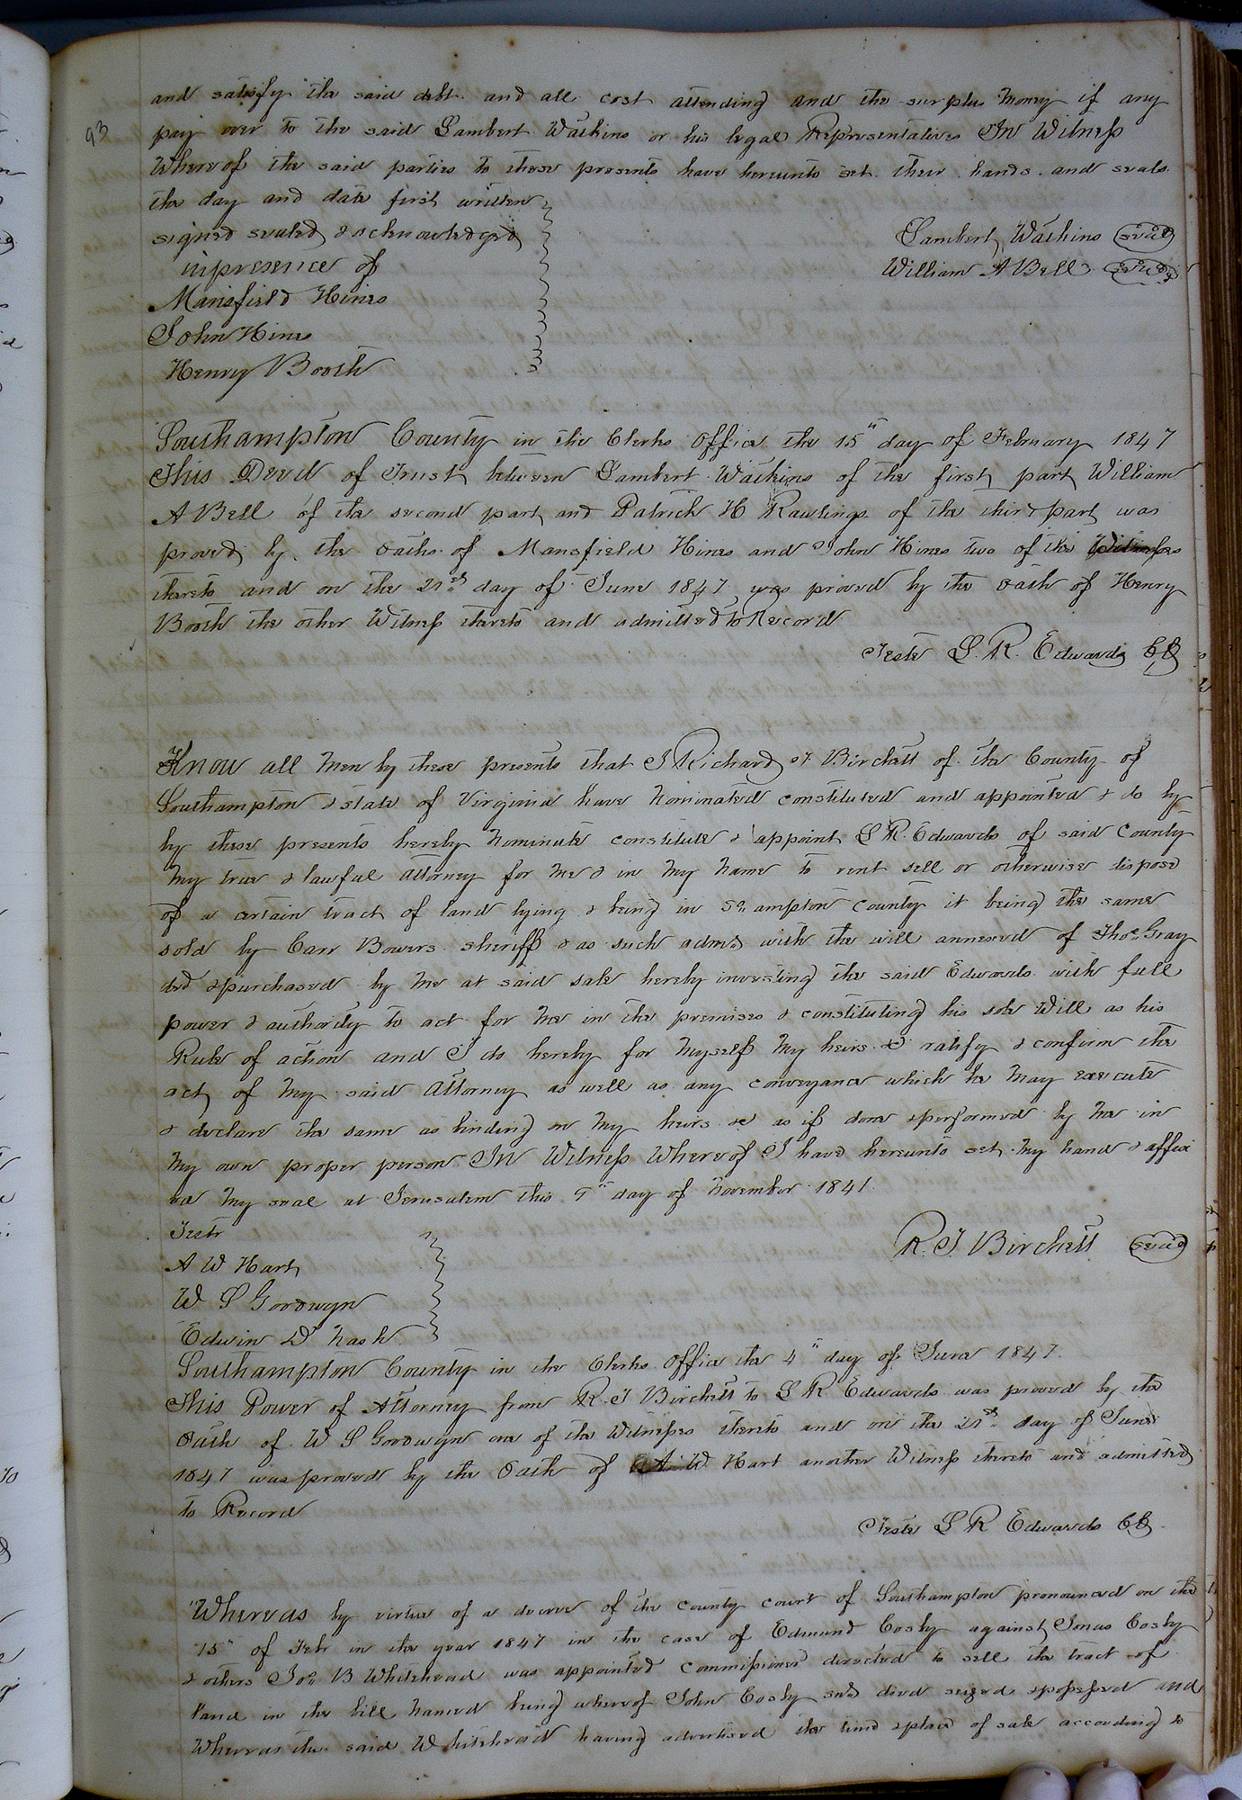 and satisfy the said debt and all cost attending and the surplus money if any
93
pay over to the said Lambert Watkins or his legal Representatives In Witness
Whereof the said parties to these presents have hereunto set their hands and seals
the day and date first written
signed sealed & acknowledged
Lambert Watkins seal
in presence of
William A Bell seal
Mansfield Hines
John Hines
Henry Booth
Southampton County in the Clerks Office the 15" day of February 1847
This Deed of Trust between Lambert Watkins of the first part William
A Bell of the second part and Patrick H Rawlings of the third part was
proved by the oaths of Mansfield Hines and John Hines two of the Witnesses
thereto and on the 21st day of June 1847 was proved by the oath of Henry
Booth the other Witness thereto and admitted to Record
Teste L. R. Edwards CC
Know all Men by these presents that I Richard T Birchett of the County of
Southampton & state of Virginia have Nominated constituted and appointed & do by
by these presents hereby Nominate constitute & appoint L R. Edwards of said County
My true & lawful attorney for me & in My Name to rent sell or otherwise dispose
of a certain tract of land lying & being in Sº ampton county it being the same
sold by Carr Bowers sheriff & as such admr with the will annexed of Thos Gray
decd & purchased by me at said sale hereby investing the said Edwards with full
power & authority to act for me in the premises & constituting his sole Will as his
Rule of action and I do hereby for Myself My heirs &c ratify & confirm the
act of My said attorney as well as any conveyance which he May execute
& declare the same as binding on My heirs &c as if done & performed by me in
My own proper person In Witness Whereof I have hereunto set My hand & affix
ed My seal at Jerusalem this 9" day of November 1841.
Teste
R. T Birchett seal
A W Hart
W S Goodwyn
Edwin D Nash
Southampton County in the Clerks Office the 4" day of June 1847.
This Power of Attorney from R. T Birchett to L R Edwards was proved by the
Oath of W S Goodwyn one of the Witnesses thereto and on the 21st day of June
1847 was proved by the Oath of A W Hart another Witness thereto and admitted
to Record
Teste L R Edwards CC
Whereas by virtue of a decree of the county court of Southampton pronounced on the
15" of Feb in the year 1847 in the case of Edmund Cosby against Jonas Cosby
& others Jno B Whitehead was appointed commissioner directed to sell the tract of
land in the bill named being whereof John Cosby died seized & possessed and
Whereas the said Whitehead having advertised the time & place of sale according to